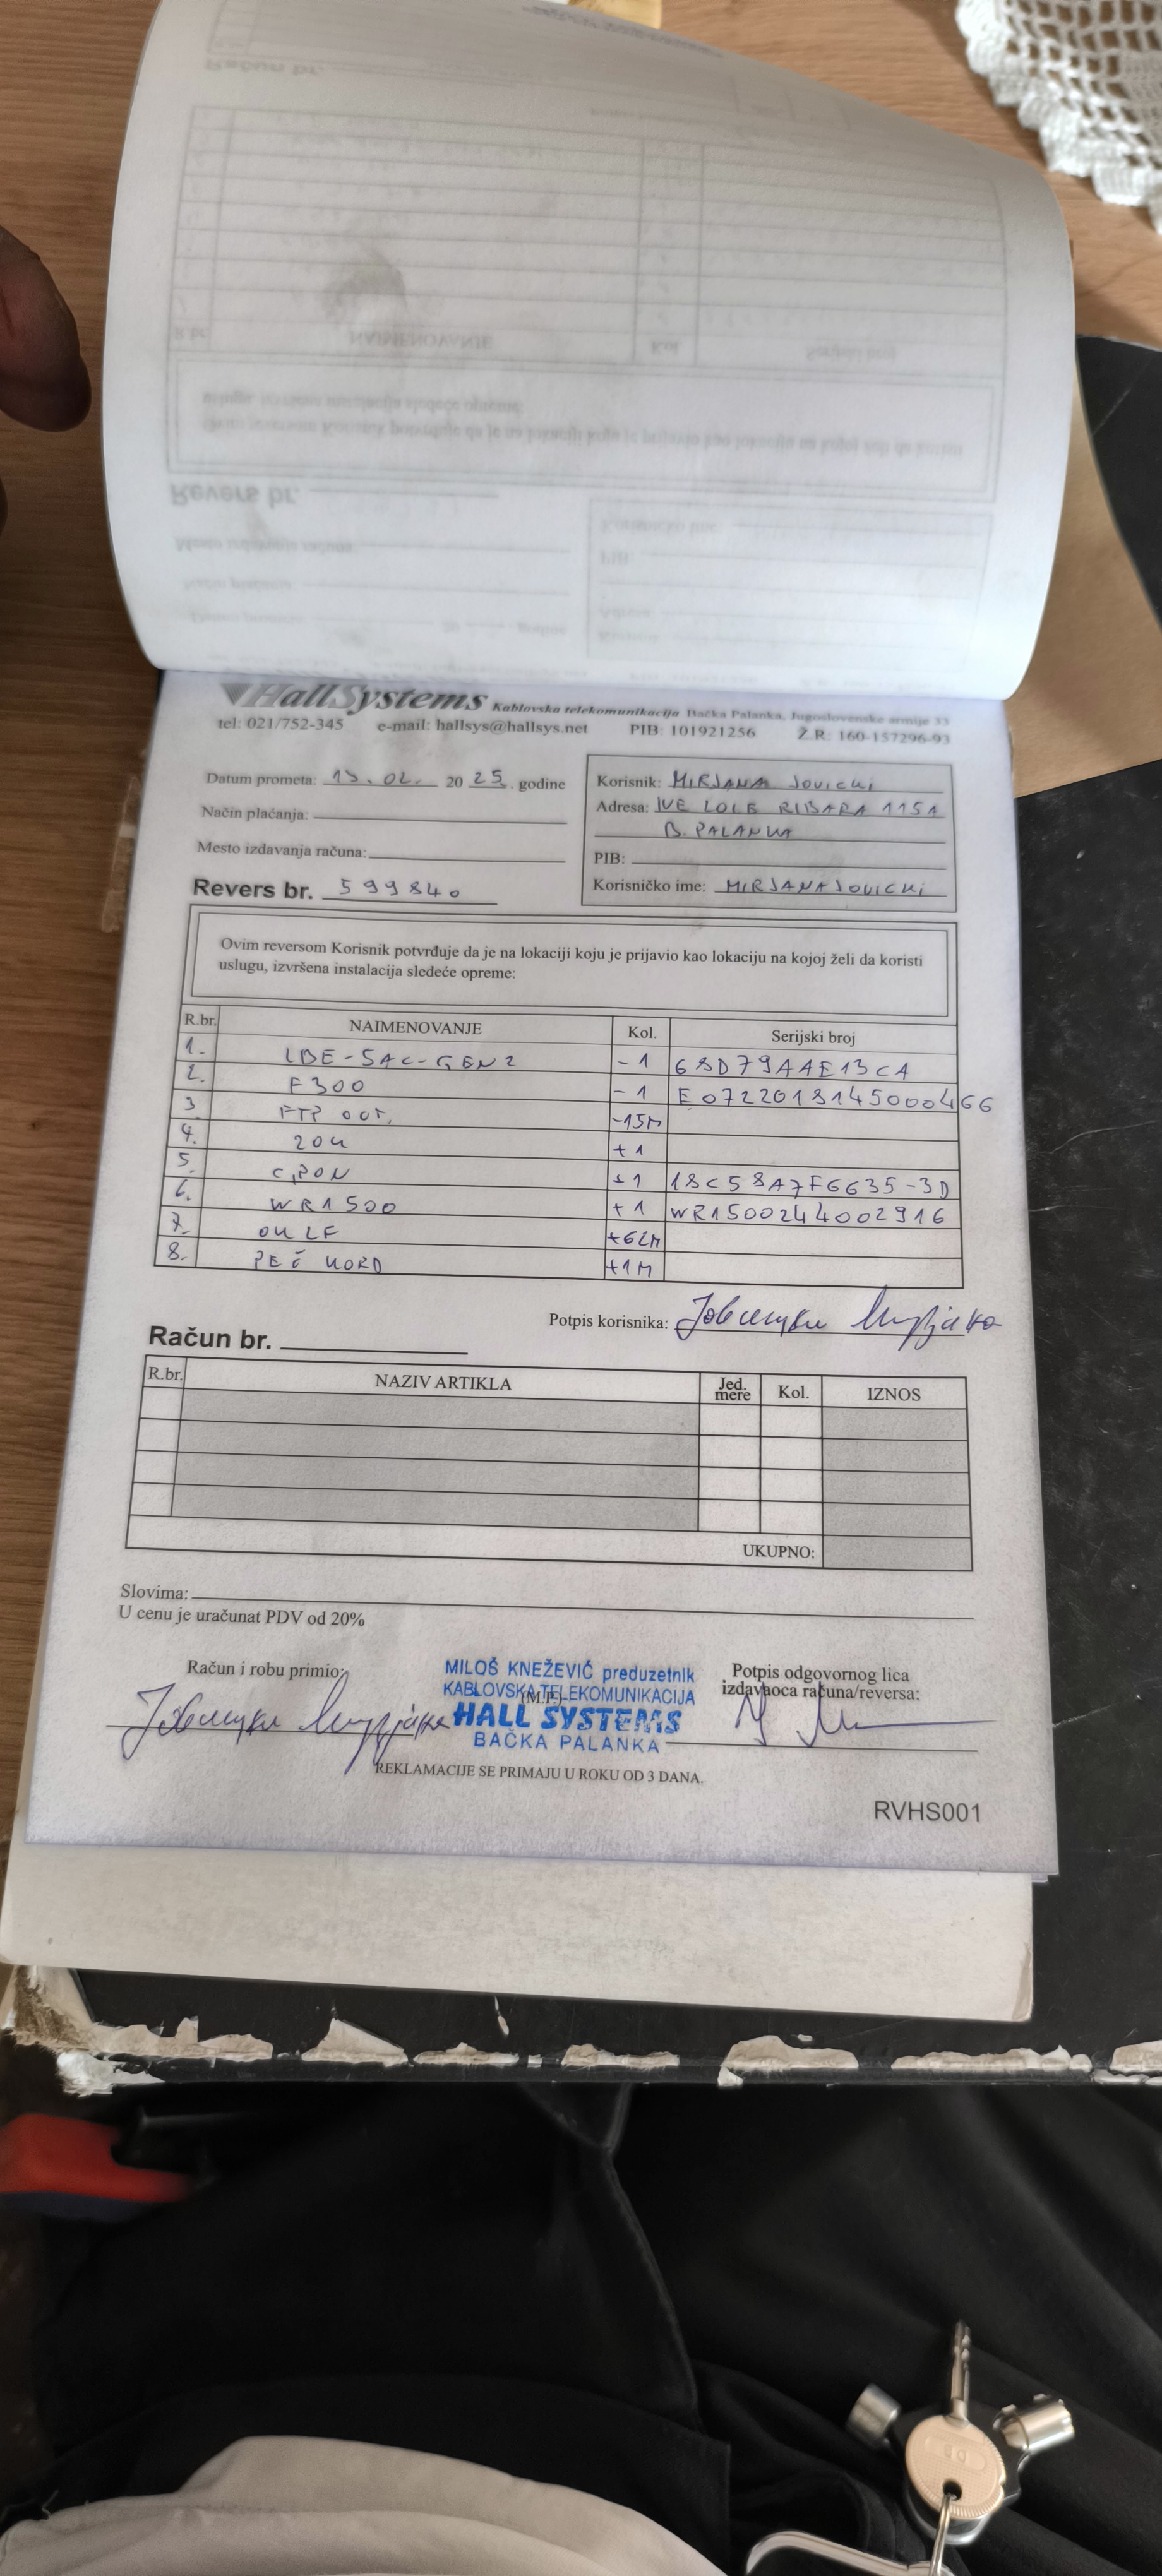 HallSystems Kablovska telekomunikacija Bačka Palanka, Jugoslovenske armije 33
tel: 021/752-345 e-mail: hallsys@hallsys.net PIB: 101921256 Ž.R: 160-157296-93
Datum prometa: 13.02. 20 25. godine
Način plaćanja:
Mesto izdavanja računa:
Revers br. 599840
Korisnik: MIRJANA JOVICKI
Adresa: IVE LOLE RIBARA 115A
B. PALANKA
PIB:
Korisničko ime: MIRJANAJOVICKI
Ovim reversom Korisnik potvrđuje da je na lokaciji koju je prijavio kao lokaciju na kojoj želi da koristi
uslugu, izvršena instalacija sledeće opreme:
R.br. NAIMENOVANJE Kol. Serijski broj
1. LBE-5AC-GEN2 -1 68D79AAE13CA
2. F300 -1 E0722018145000466
3. FTP OUT. -15M
4. ZOK +1
5. GPON +1 18C58A7F6635-3D
6. WR1500 +1 WR1500244002916
7. +62M
8. PEČ KORD +1M
Potpis korisnika: Јовицки Мирјана
Račun br.
R.br. NAZIV ARTIKLA Jed. mere Kol. IZNOS
UKUPNO:
Slovima:
U cenu je uračunat PDV od 20%
Račun i robu primio:
Јовицки Мирјана
MILOŠ KNEŽEVIĆ preduzetnik
KABLOVSKA TELEKOMUNIKACIJA
(M.P.)
HALL SYSTEMS
BAČKA PALANKA
Potpis odgovornog lica
izdavaoca računa/reversa:
REKLAMACIJE SE PRIMAJU U ROKU OD 3 DANA.
RVHS001